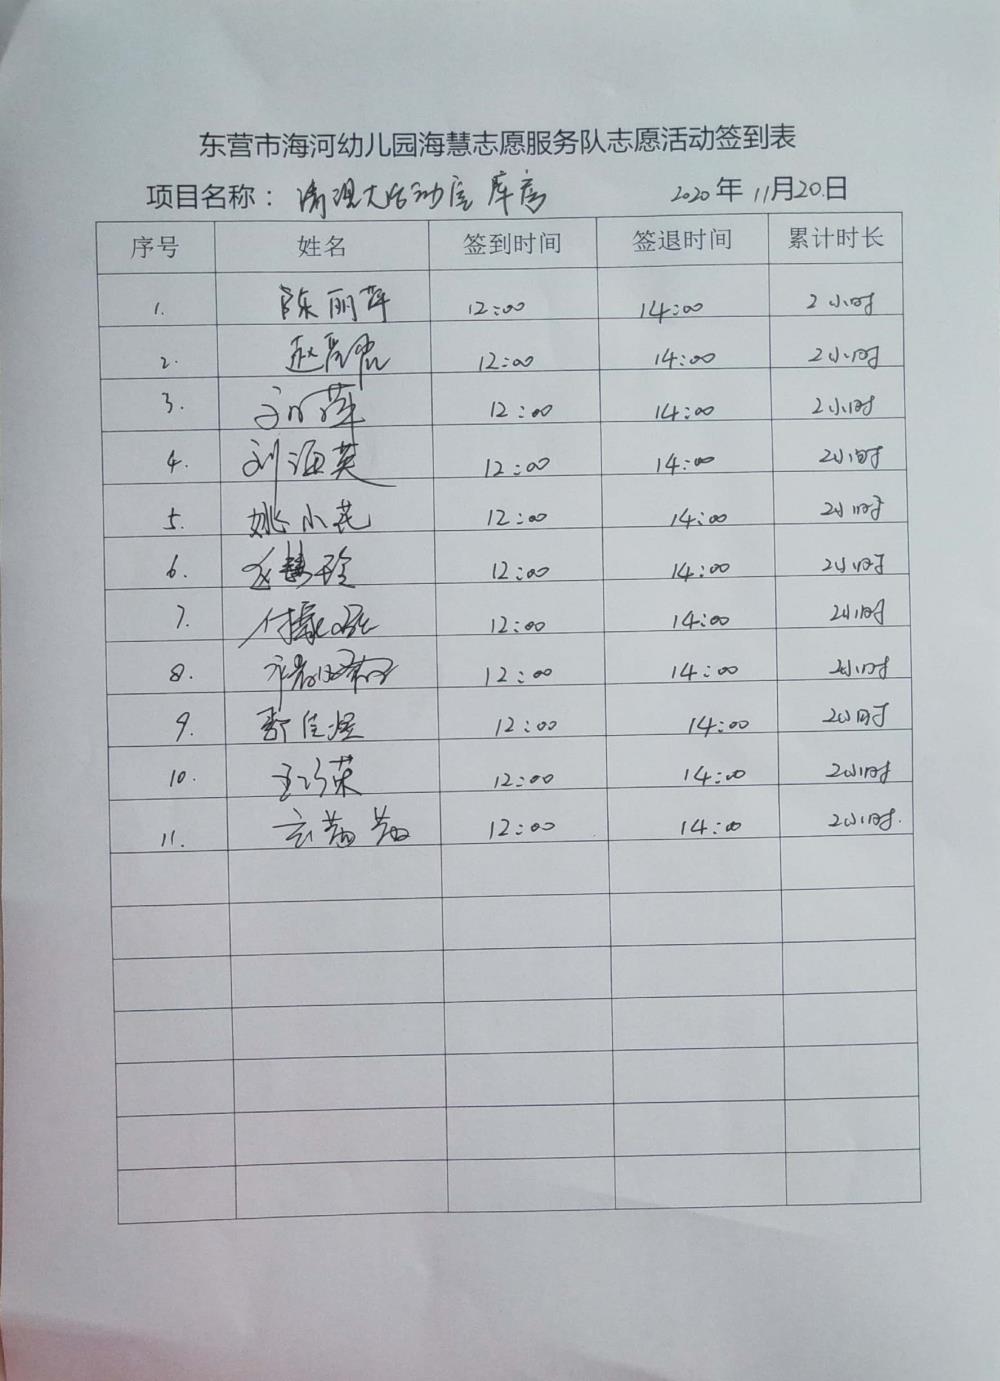 东营市海河幼儿园海慧志愿服务队志愿活动签到表
项目名称：清理大活动室库房 2020年11月20日
序号 姓名 签到时间 签退时间 累计时长
1. 陈丽萍 12:00 14:00 2小时
2. 12:00 14:00 2小时
3. 12:00 14:00 2小时
4. 刘海英 12:00 14:00 2小时
5. 姚小花 12:00 14:00 2小时
6. 12:00 14:00 2小时
7. 12:00 14:00 2小时
8. 12:00 14:00 2小时
9. 12:00 14:00 2小时
10. 王巧荣 12:00 14:00 2小时
11. 12:00 14:00 2小时.